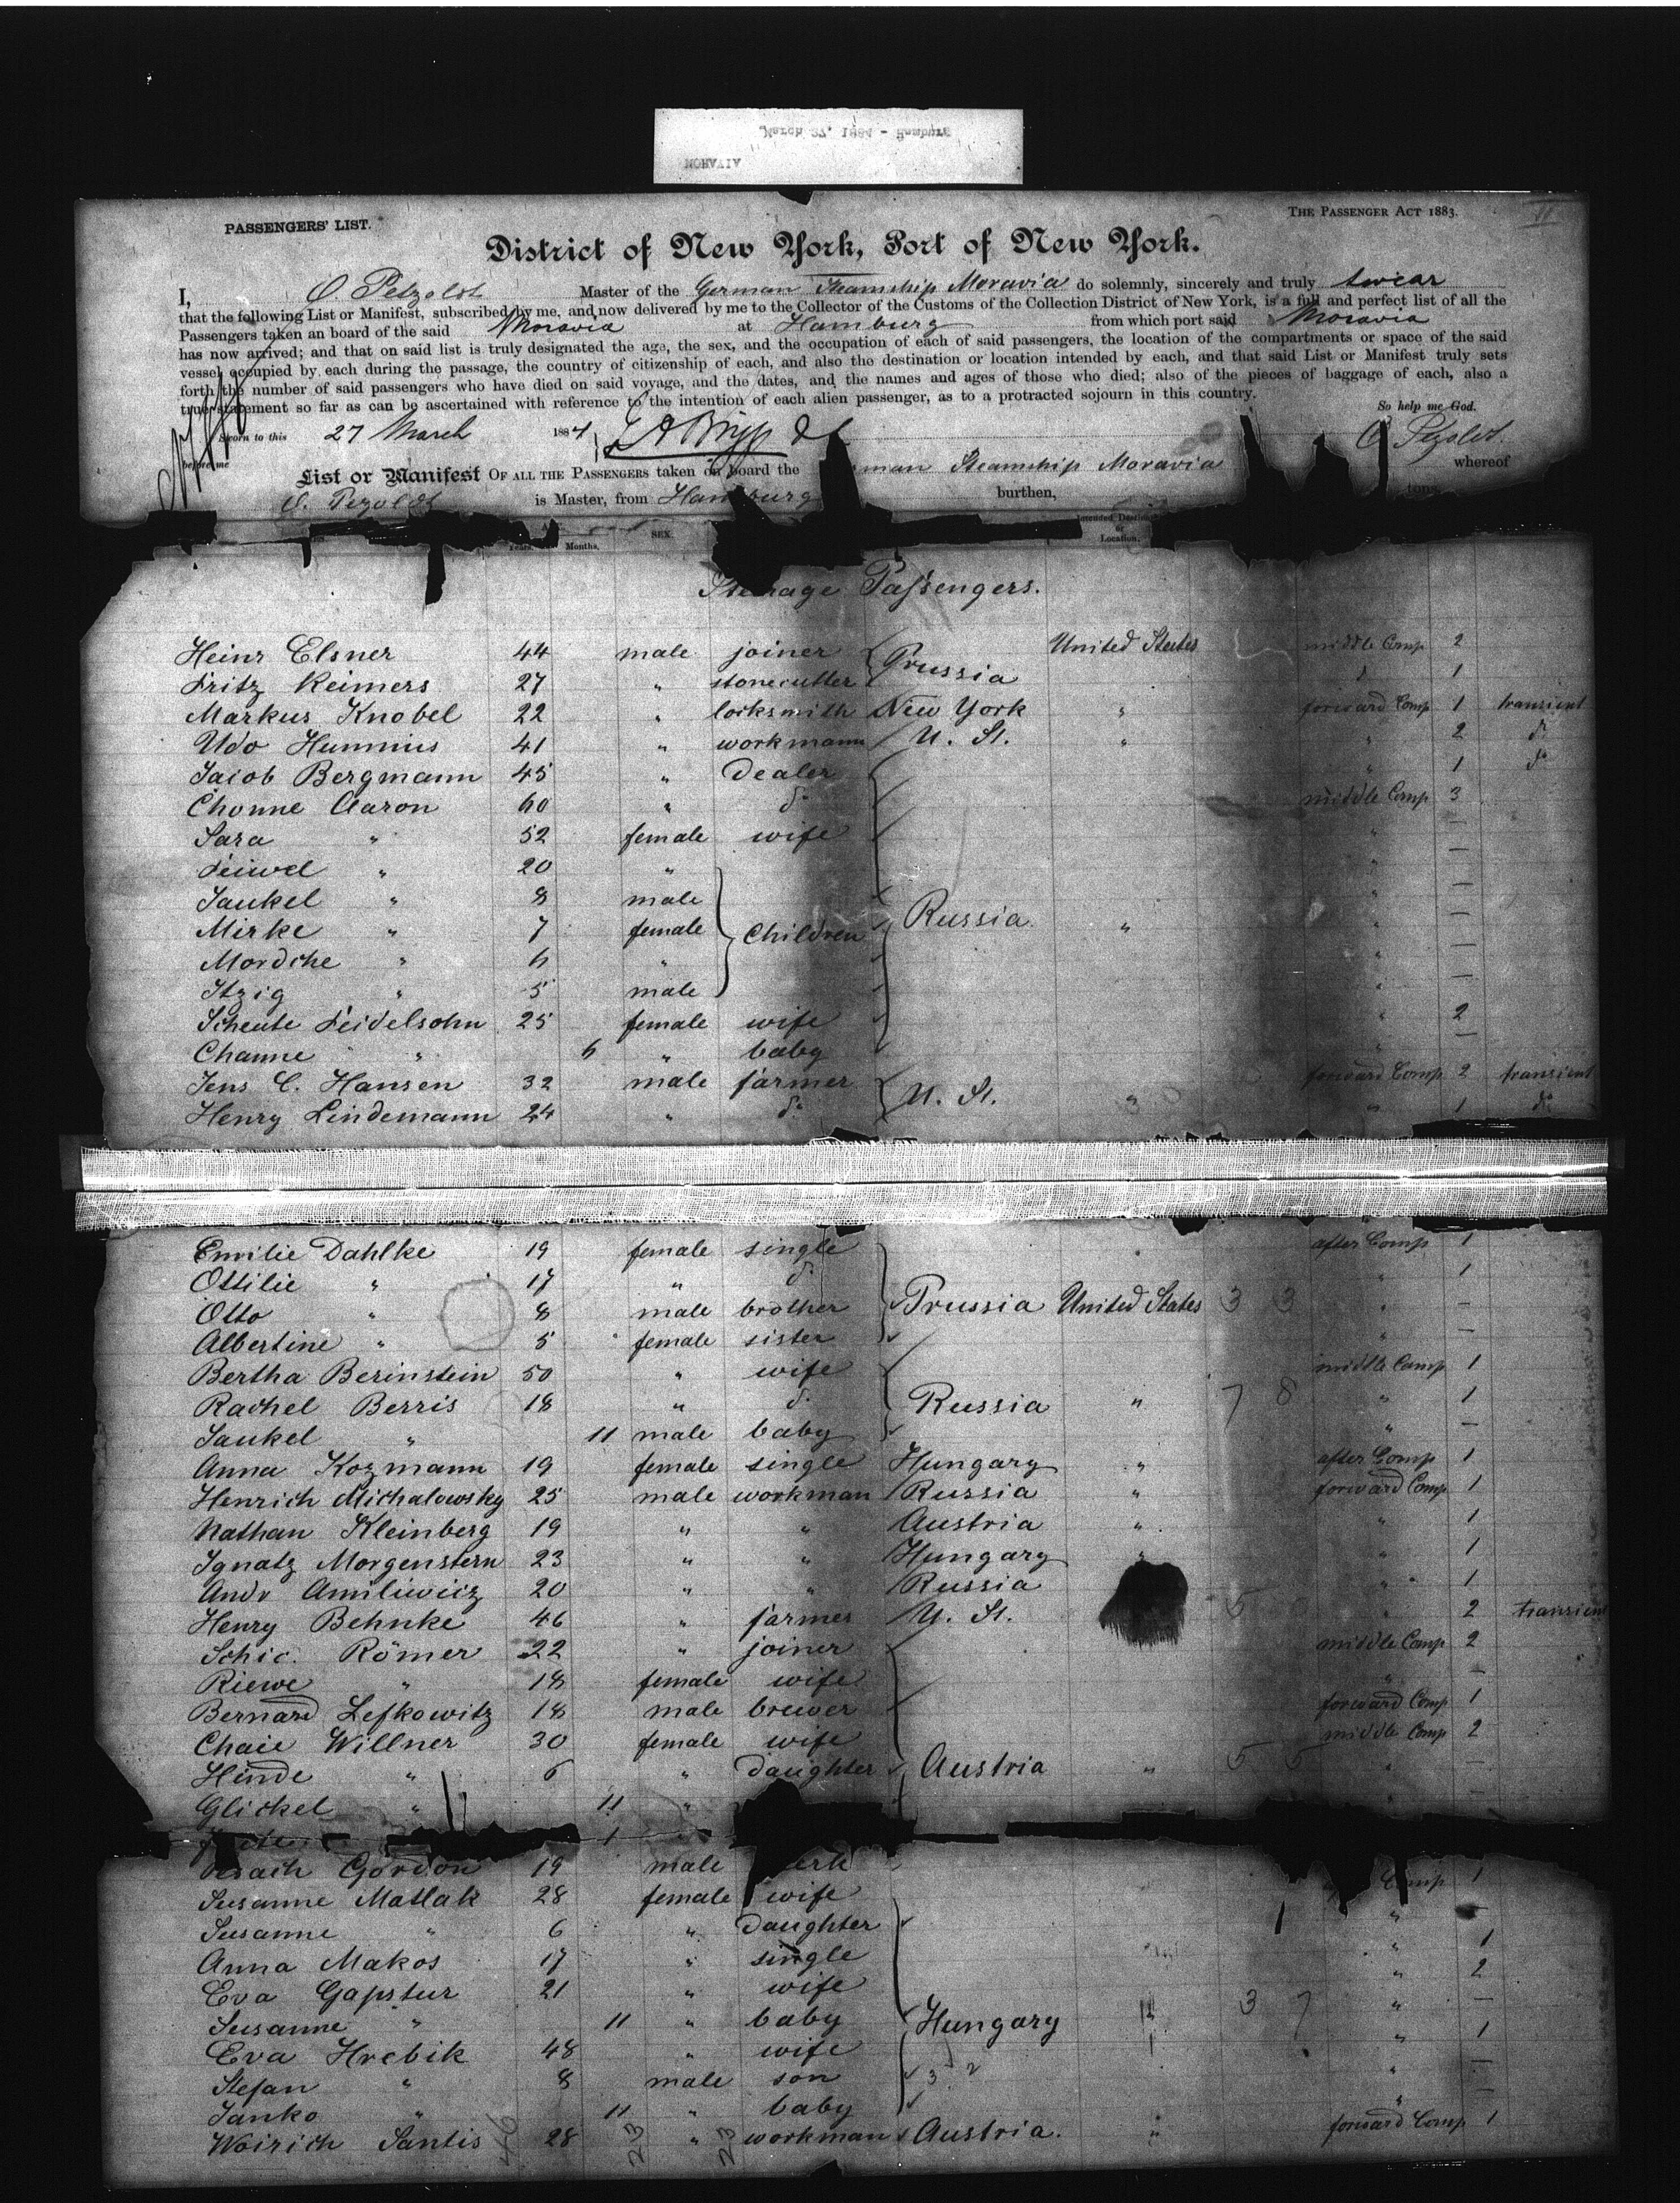 March 27, 1884 - Hamburg
MORAVIA
PASSENGERS' LIST.
THE PASSENGER ACT 1883.
II
District of New York, Port of New York.
I, O. Petzoldt Master of the German Steamship Moravia do solemnly, sincerely and truly swear
that the following List or Manifest, subscribed by me, and now delivered by me to the Collector of the Customs of the Collection District of New York, is a full and perfect list of all the
Passengers taken an board of the said Moravia at Hamburg from which port said Moravia
has now arrived; and that on said list is truly designated the age, the sex, and the occupation of each of said passengers, the location of the compartments or space of the said
vessel occupied by each during the passage, the country of citizenship of each, and also the destination or location intended by each, and that said List or Manifest truly sets
forth the number of said passengers who have died on said voyage, and the dates, and the names and ages of those who died; also of the pieces of baggage of each, also a
true statement so far as can be ascertained with reference to the intention of each alien passenger, as to a protracted sojourn in this country.
So help me God.
Sworn to this 27 March 1884
before me
List or Manifest OF ALL THE PASSENGERS taken on board the man Steamship Moravia whereof
is Master, from Hamburg burthen, tons
Years. Months. SEX. Intended Destination or Location.
Steerage Passengers.
Heinr Elsner 44 male joiner Prussia United States middle Comp 2
Fritz Reimers 27 " stonecutter " 1
Markus Knobel 22 " locksmith New York " forward Comp 1 transient
Udo Hummius 41 " workmann U. St. " " 2 do
Jacob Bergmann 45 " dealer " 1 do
Chonne Aaron 60 " do middle Comp 3
Sara " 52 female wife " —
Leiwel " 20 " " —
Jankel " 8 male " —
Mirke " 7 female Children Russia " " —
Mordche " 6 " " —
Itzig " 5 male " —
Scheute Feidelsohn 25 female wife " 2
Channe " 6 " baby " —
Jens C. Hansen 32 male farmer U. St. " forward Comp 2 transient
Henry Lindemann 24 " do " 1 do
Emilie Dahlke 19 female single after Comp 1
Ottilie " 17 " do " 1
Otto " 8 male brother Prussia United States 3 3 " —
Albertine " 5 female sister " —
Bertha Berinstein 50 " wife middle Comp 1
Rachel Berris 18 " do Russia " 7 8 " 1
Jankel " 11 male baby " —
Anna Kozmann 19 female single Hungary " after Comp 1
Henrich Michalowsky 25 male workman Russia " forward Comp 1
Nathan Kleinberg 19 " " Austria " " 1
Ignatz Morgenstern 23 " " Hungary " " 1
Andr Amiliewicz 20 " " Russia " 1
Henry Behnke 46 " farmer U. St. 5 " 2 transient
Schic. Römer 22 " joiner middle Comp 2
Riewe " 18 female wife " —
Bernard Lefkowitz 18 male brewer forward Comp 1
Chaie Willner 30 female wife middle Comp 2
Hinde " 6 " daughter Austria " 5 5 " —
Glickel " 11 " —
Gordon 19 male Comp 1
Susanne Matlak 28 female wife " —
Susanne " 6 " daughter " 1
Anna Makos 17 " single " 2
Eva Gapstur 21 " wife " —
Susanne " 11 " baby Hungary " 3 7 " 1
Eva Hrebik 48 " wife " —
Stefan " 8 male son 3 2 " —
Janko " 11 " baby
Woirich Santis 28 " workman Austria. " forward Comp 1
46 23 23